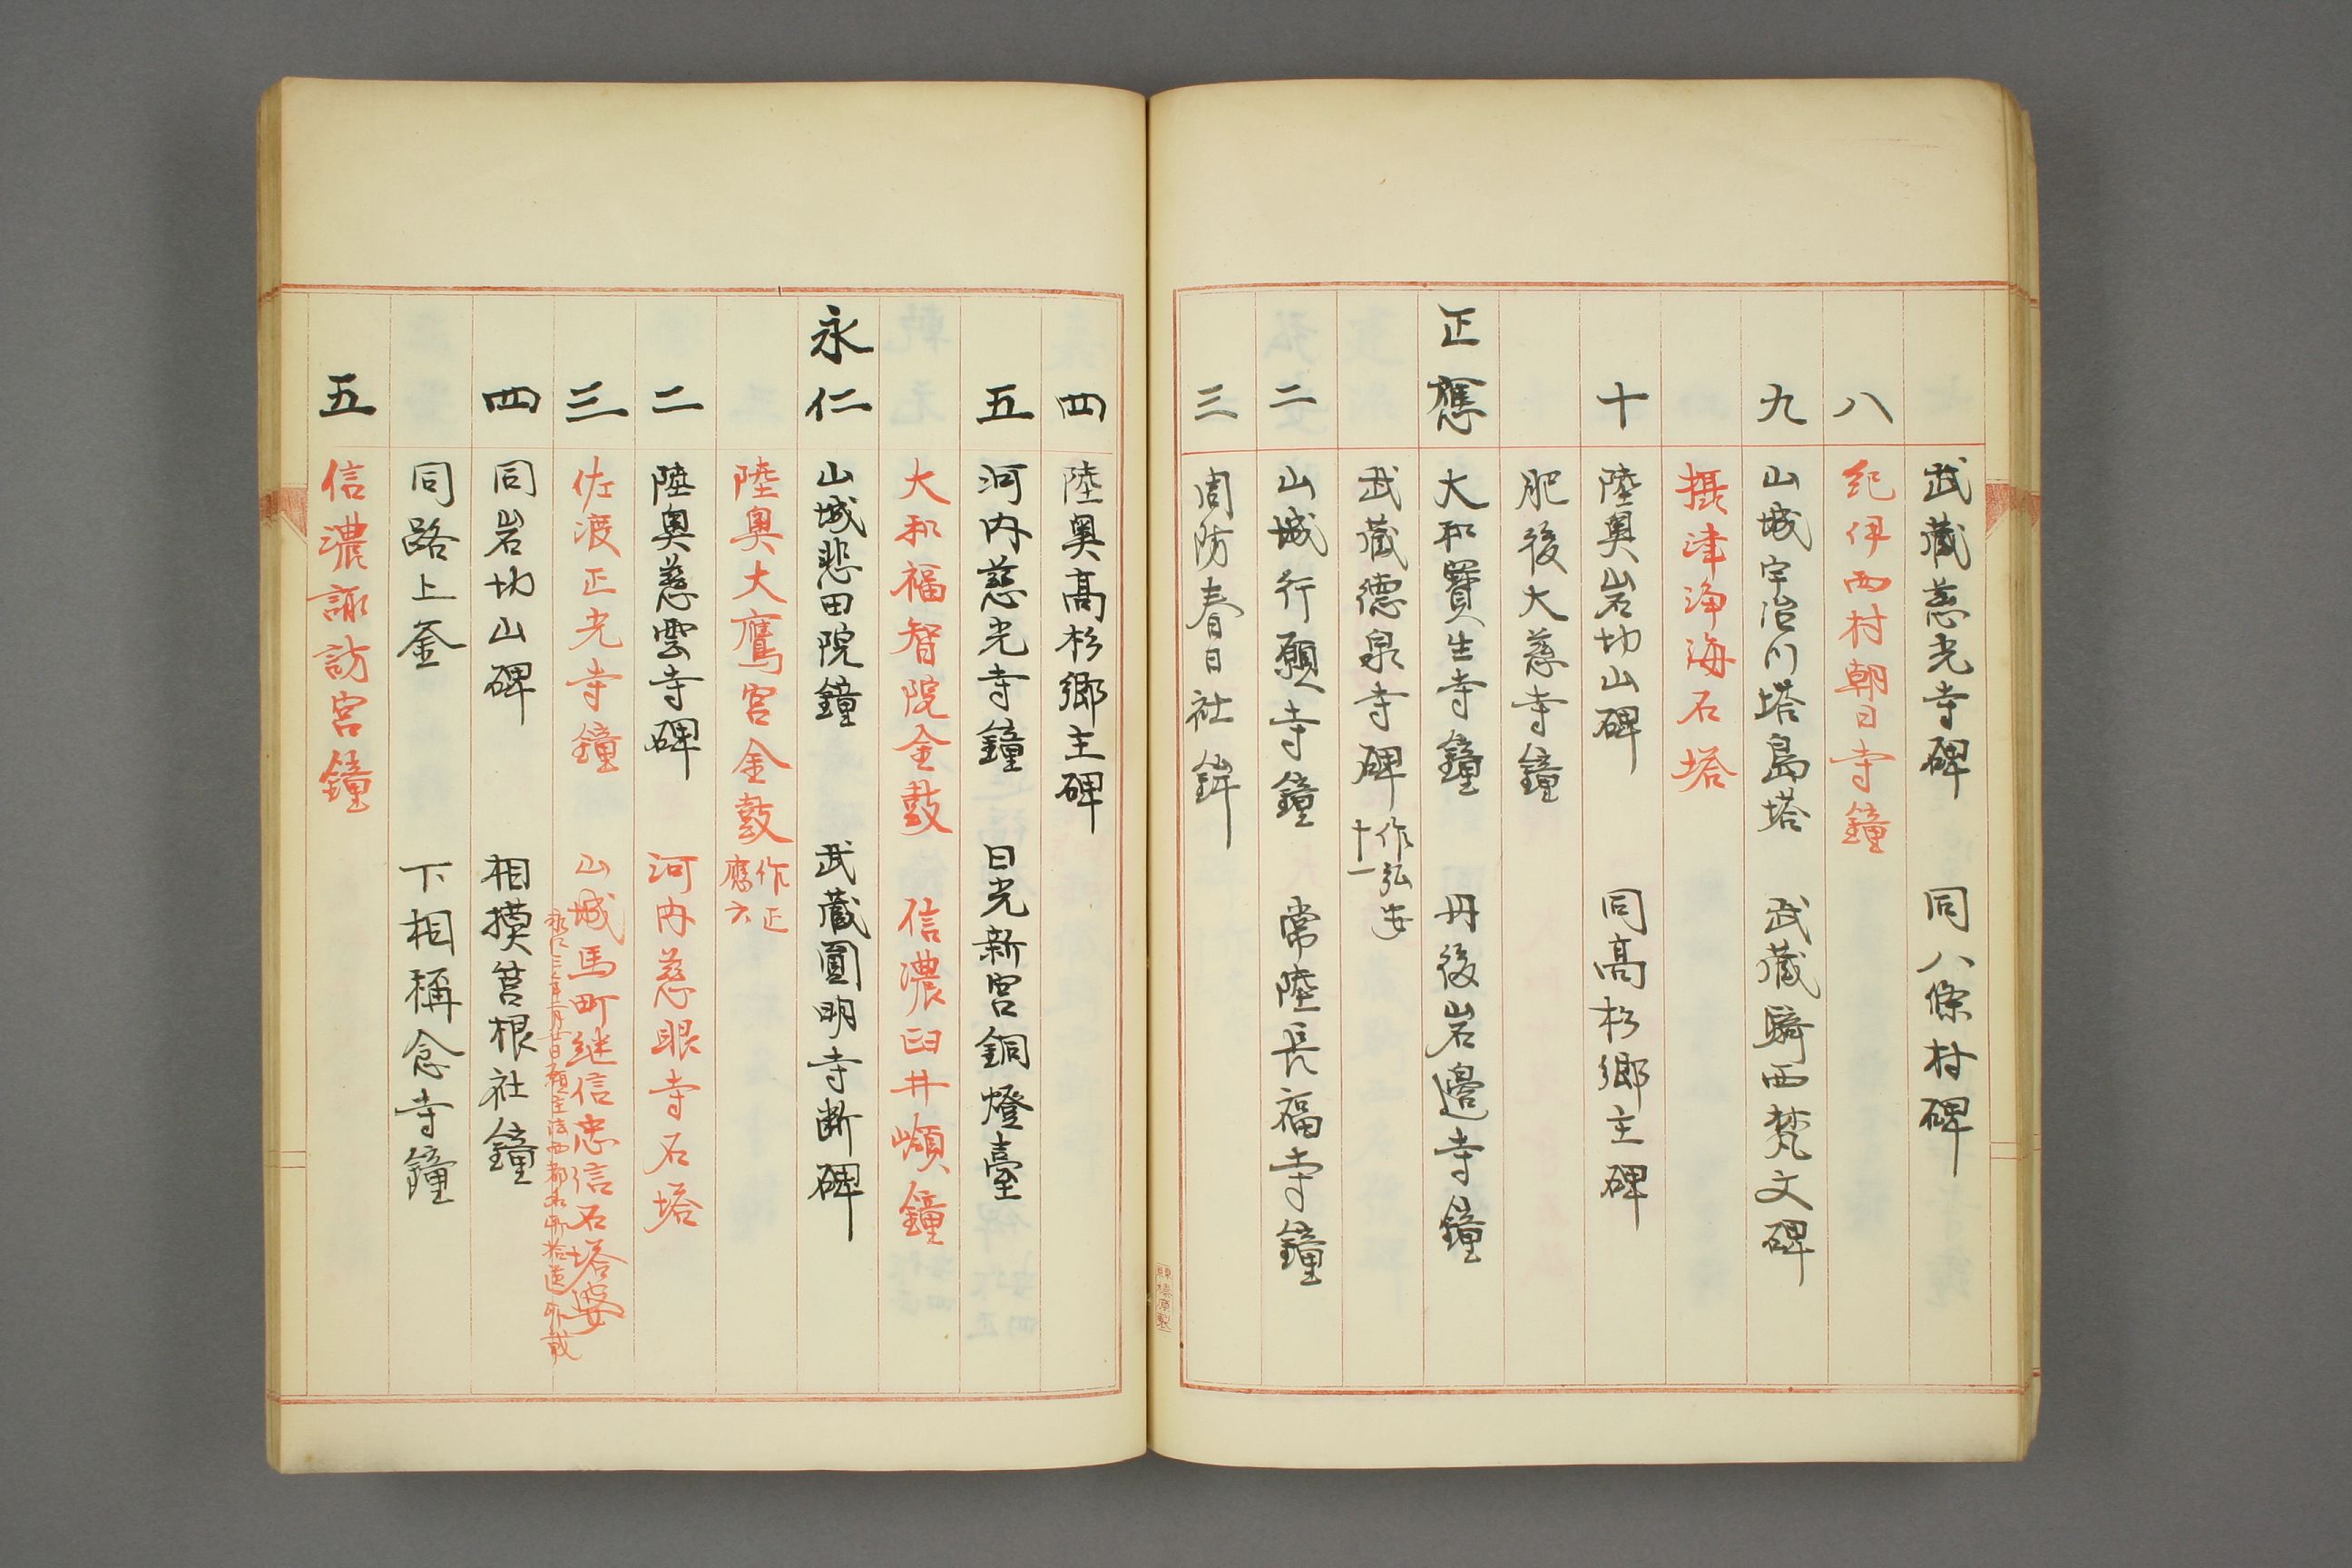 武藏慈光寺碑　同八條村碑
八　紀伊西村朝日寺鐘
九　山城宇治川塔島塔　武藏騎西梵文碑
攝津淨海石塔
十　陸奧岩切山碑　同高杉郷主碑
肥後大慈寺鐘
正應　大和寶生寺鐘　丹後岩邊寺鐘
武藏德泉寺碑　作弘安十一
二　山城行願寺鐘　常陸長福寺鐘
三　周防春日社鉾
四　陸奧高杉郷主碑
五　河内慈光寺鐘　日光新宮銅燈臺
大和福智院金鼓　信濃臼井㟽鐘
永仁　山城悲田院鐘　武藏圓明寺断碑
陸奧大鷹宮金鼓　作正應六
二　陸奧慈雲寺碑　河内慈眼寺石塔
三　佐渡正光寺鐘　山城馬町継信忠信石塔婆
永仁三年二月廿日願主法西都名所拾遺所載
四　同岩切山碑　相摸筥根社鐘
同路上釜　下相稱念寺鐘
五　信濃諏訪宮鐘